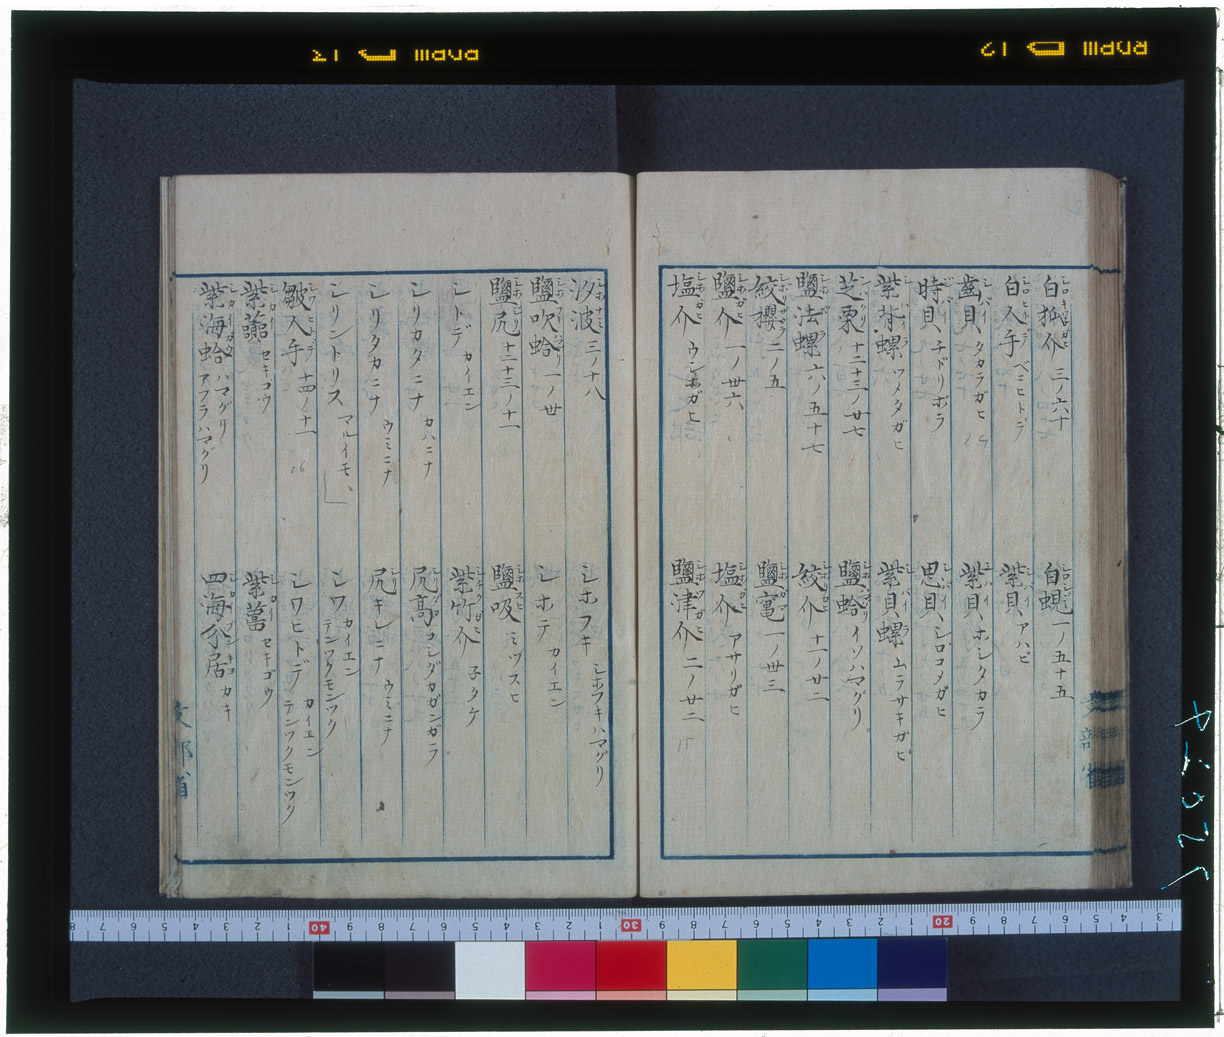 白狐介 三ノ六十
白入手 ベニヒトデ
歯貝 タカラガヒ
時貝 チドリボラ
紫背螺 ツメタガヒ
芝栗 十二十三ノ廿七
鹽法螺 六ノ五十七
紋櫻 二ノ五
鹽介 一ノ卅六
塩介 ウンホガヒ
白蜆 一ノ五十五
紫貝 アハビ
紫貝 ホシタカラ
思貝 シロコメガヒ
紫貝螺 ムラサキガヒ
鹽蛤 イソハマグリ
絞介 十一ノ廿二
鹽竃 一ノ卅三
塩介 アサリガヒ
鹽津介 二ノ廿二
15
文部省
汐波 三ノ十八
鹽吹蛤 一ノ卅
鹽尻 十二十三ノ十一
シトデ カイエン
シリカタニナ カハニナ
シリタカニナ ウミニナ
シリントリス マルイモ
皺入手 十四ノ十一
16
紫蘁 セキコウ
紫海蛤 ハマグリ アブラハマグリ
シホフキ シホフキハマグリ
シホテ カイエン
鹽吸 ミヅスヒ
紫竹介 子タケ
尻高 コシダカガンガラ
尻キレニナ ウミニナ
シワ カイエン テンツクモンツク
シワヒトデ カイエン テンツクモンツク
紫薑 セキゴウ
四海分居 カキ
文部省